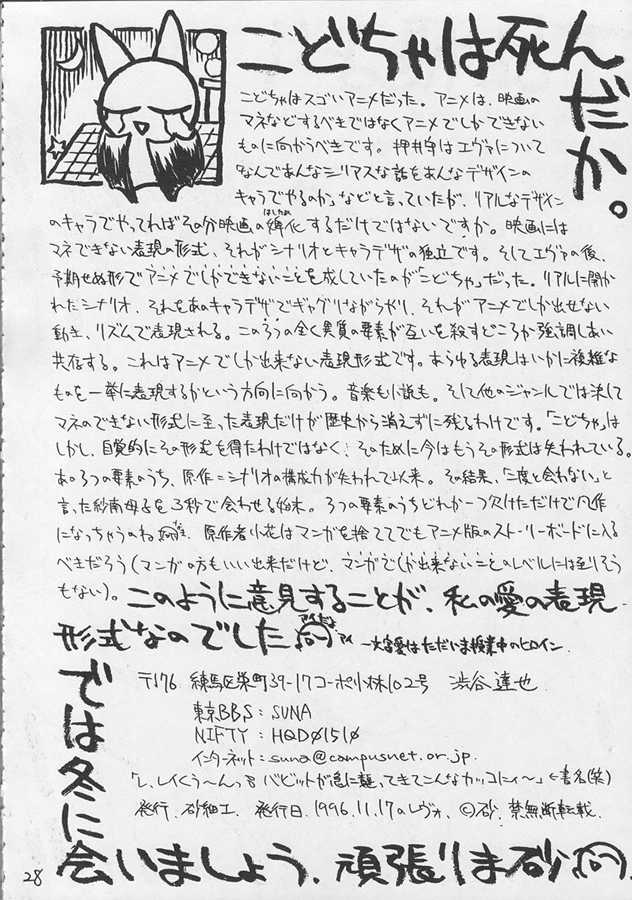 こどちゃは死んだか。
こどちゃはスゴいアニメだった。アニメは、映画の
マネなどするべきではなくアニメでしかできない
ものに向かうべきです。押井守はエヴァについて
「なんであんなシリアスな話をあんなデザインの
キャラでやるのか」などと言っていたが、リアルなデザイン
のキャラでやってればその分映画の化するだけではないですか。映画には
マネできない表現の形式、それがシナリオとキャラデザの独立です。そしてエヴァの後、
予期せぬ形でアニメでしかできないことを成していたのが「こどちゃ」だった。リアルに開か
れたシナリオ、それをあのキャラデザでギャグりながらやり、それがアニメでしか出せない
動き、リズムで表現される。この3つの全く異質の要素が互いを殺すどころか強調しあい
共存する。これはアニメでしか出来ない表現形式です。あらゆる表現はいかに複雑な
ものを一挙に表現するかという方向に向かう。音楽も小説も。そして他のジャンルでは決して
マネのできない形式に至った表現だけが歴史から消えずに残るわけです。「こどちゃ」は
しかし、自覚的にその形式を得たわけではなく、そのために今はもうその形式は失われている。
あの3つの要素のうち、原作=シナリオの構成力が失われて以来。その結果、「二度と会わない」と
言った紗南母子を3秒で会わせる始末。3つの要素のうちどれか一つ欠けただけで凡作
になっちゃうのね 原作者小花はマンガを捨ててでもアニメ版のストーリーボードに入る
べきだろう(マンガの方もいい出来だけど、マンガでしか出来ないことのレベルには至りそう
もない)。このように意見することが、私の愛の表現
形式なのでした
一大宮愛はただいま授業中のヒロイン
〒176 練馬区栄町39-17コーポ小林102号 渋谷達也
東京BBS: SUNA
NIFTY: HQD01510
インターネット: suna@campusnet.or.jp.
「レ、レイくぅ〜んっ バビットが急に襲ってきてこんなカッコにィ〜」←書名(笑)
発行.砂細工. 発行日.1996.11.17のレヴォ、©砂.禁無断転載.
では冬に
会いましょう. 頑張りま砂
28